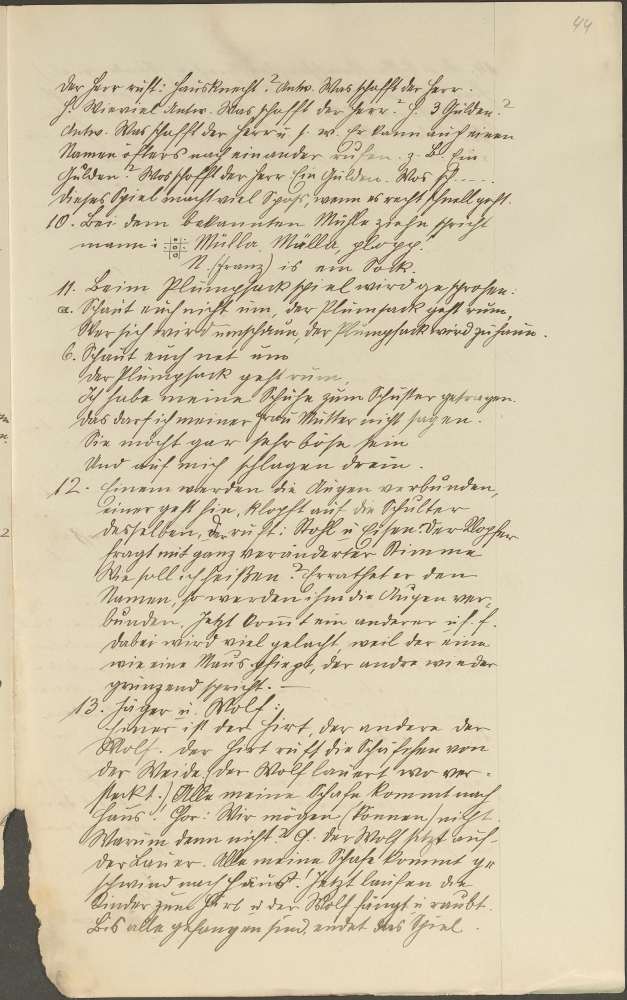 44
Der Herr ruft: Hausknecht? Antw. Was schafft der Herr.
H. Wieviel Antw. Was schafft der Herr? H. 3 Gulden?
Antw. Was schafft der Herr u. s. w. Er kann auf einen
Namen öfters nach einander rufen. z. B. Ein
Gulden? Was schafft der Herr Ein Gulden. Was sch....
dieses Spiel macht viel Spass, wenn es recht schnell geht.
10. Bei dem bekannten Mühle ziehn spricht
man: Mülla, Mülla, plopp.
N. (Franz) is em Sock.
11. Beim Plumpsack spiel wird gesprochen:
a. Schaut euch nicht um, der Plumsack geht rum,
Wer sich wird umschaun, der Plumpsack wird zuhaun.
b. Schaut euch net um
der Plumpsack geht rum,
Ich habe meine Schuhe zum Schuster getragen.
das darf ich meiner Frau Mutter nicht sagen.
Sie möcht gar sehr böse sein
Und auf mich schlagen drein.
12. Einem werden die Augen verbunden,
einer geht hin, klopft auf die Schulter
desselben, der ruft: Stahl u. Eisen. Der Klopfer
fragt mit ganz veränderter Stimme
Wie soll ich heißen? Errathet er den
Namen, so werden ihm die Augen ver-
bunden. Jetzt komt ein anderer u. s. f.
dabei wird viel gelacht, weil der eine
wie eine Maus piepst, der andre wieder
grunzend spricht. —
13. Jäger u. Wolf:
Einer ist der Hirt, der andere der
Wolf. der Hirt ruft die Schäfchen von
der Weide (der Wolf lauert wo ver-
steckt.) Alle meine Schafe kommt nach
Haus! Chor: Wir mögen (können) nicht.
Warum denn nicht? Ch. der Wolf sitzt auf
der Lauer. Alle meine Schafe kommt ge-
schwind nach Haus! Jetzt laufen die
Kinder zum Hirt u der Wolf fängt u raubt.
Bis alle gefangen sind, endet das Spiel.